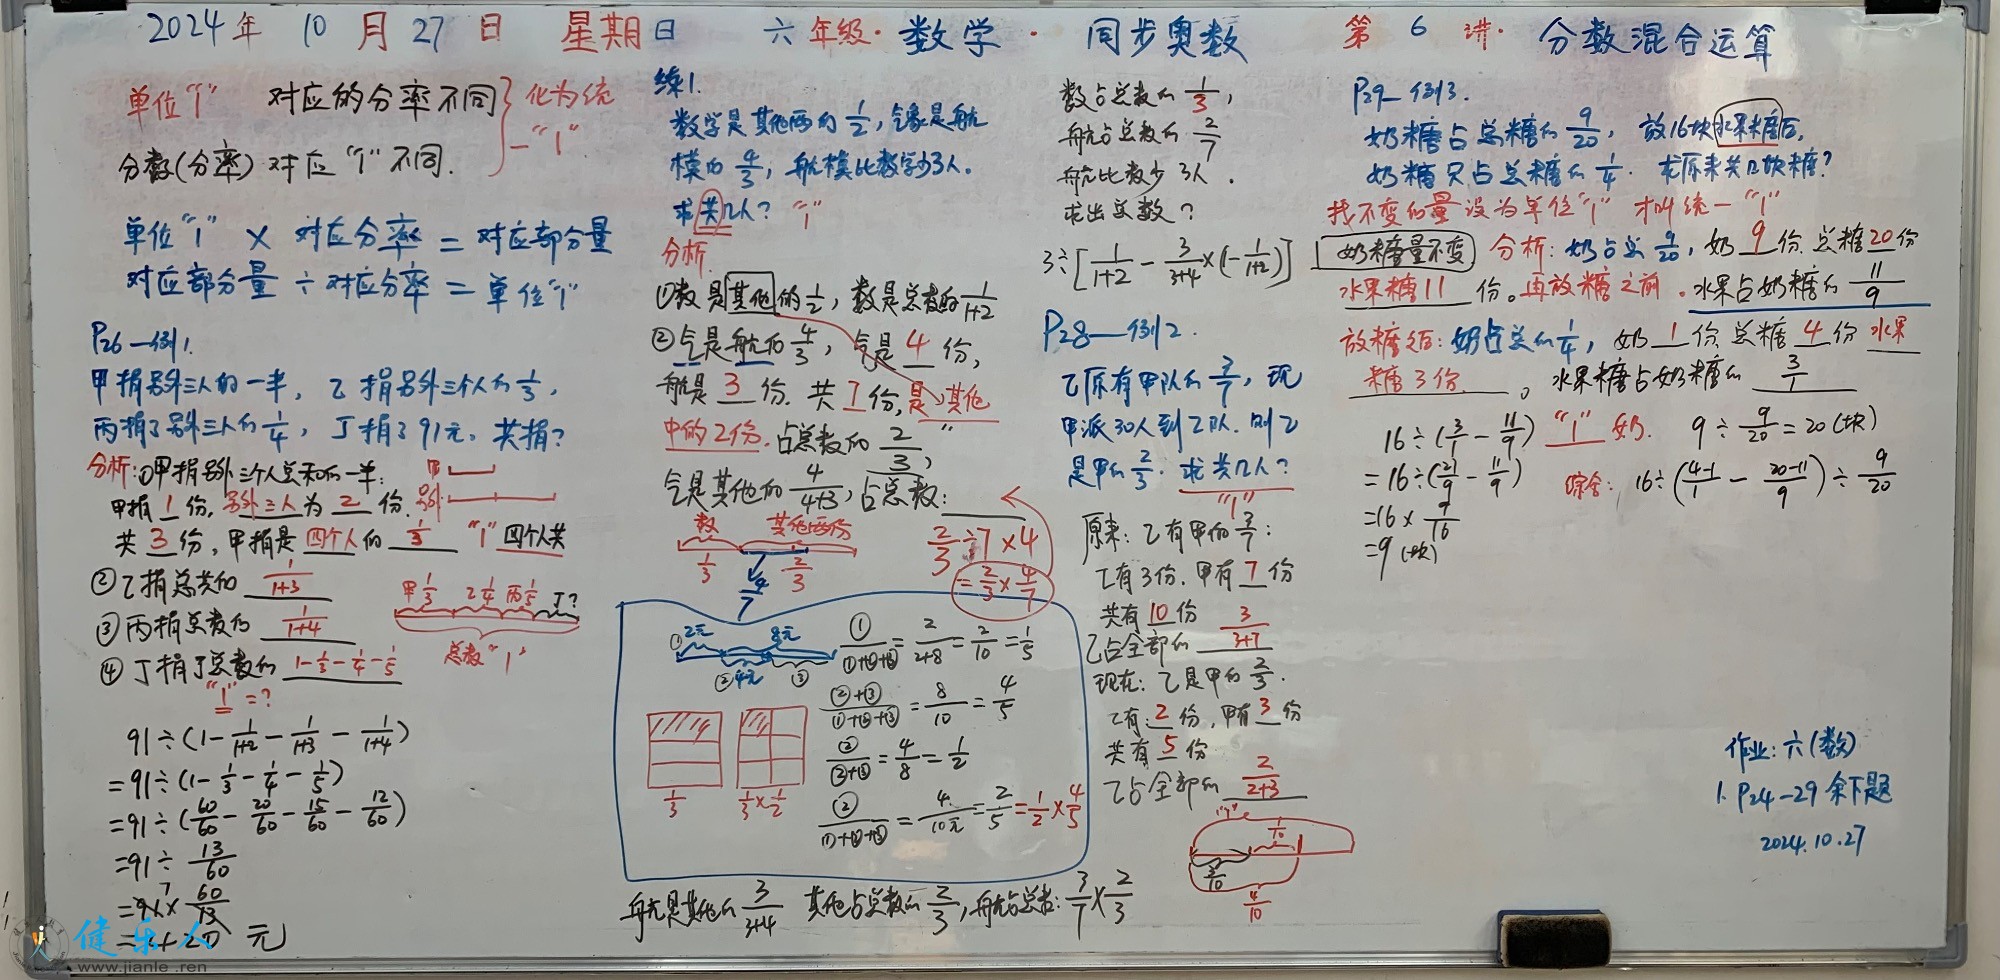 2024年 10月27日 星期日 六年级·数学·同步奥数 第6讲·分数混合运算
单位"1" 对应的分率不同
分数(分率)对应"1"不同.
化为统
一"1"
单位"1" × 对应分率 = 对应部分量
对应部分量 ÷ 对应分率 = 单位"1"
P26—例1.
甲捐另外三人的一半, 乙捐另外三个人的1/3,
丙捐了另外三人的1/4, 丁捐了91元。共捐?
分析:①甲捐另外三个人总和的一半:
甲捐 1 份, 另外三人为 2 份.
甲
另外
共 3 份, 甲捐是 四个人 的 1/3 "1" 四个人共
②乙捐总共的 1/(1+3)
③丙捐总数的 1/(1+4)
甲1/3 乙1/4 丙1/5 丁?
总数"1"
④丁捐了总数的 1-1/3-1/4-1/5
"1"=?
91÷(1-1/(1+2)-1/(1+3)-1/(1+4))
=91÷(1-1/3-1/4-1/5)
=91÷(60/60-20/60-15/60-12/60)
=91÷13/60
=91×60/13
7
=420 元
健乐人
www.jianle.ren
练1.
数学是其他两的1/2, 气象是航
模的4/3, 航模比数学少3人.
求共几人? "1"
分析.
①数是其他的1/2, 数是总数的1/(1+2)
②气是航的4/3, 气是 4 份,
航是 3 份. 共 7 份, 是"其他
中的2份. 占总数的 2/3,"
气是其他的4/(4+3), 占总数:
2/3÷7×4
=2/3×4/7
数 其他两份
1/3 2/3
4/7
① 2元 8元
②4元 ③
①/(①+②+③)=2/(2+8)=2/10=1/5
(②+③)/(①+②+③)=8/10=4/5
②/(②+③)=4/8=1/2
②/(①+②+③)=4/10元=2/5=1/2×4/5
1/3 1/3×1/2
航是其他的3/(3+4) 其他占总数的2/3, 航占总数:3/7×2/3
数占总数的1/3,
航占总数的2/7
航比数少3人.
求出总数?
3÷[1/(1+2)-3/(3+4)×(-1/(1+2))]
P28—例2.
乙原有甲队的3/7, 现
甲派30人到乙队. 则乙
是甲的2/3. 求共几人?
"1"
原来: 乙有甲的3/7:
乙有3份. 甲有 7 份
共有 10 份
乙占全部的 3/(3+7)
现在: 乙是甲的2/3.
乙有 2 份, 甲有 3 份
共有 5 份
乙占全部的 2/(2+3)
"1"
1/10
3/10
4/10
P29—例3.
奶糖占总糖的9/20, 放16块水果糖后,
奶糖只占总糖的1/4. 求原来共几块糖?
找不变的量设为单位"1" 才叫统一"1"
奶糖量不变 分析: 奶占总9/20, 奶 9 份. 总糖20份
水果糖11 份。再放糖之前. 水果占奶糖的 11/9
放糖之后: 奶占总的1/4, 奶 1 份 总糖 4 份 水果
糖3份 。水果糖占奶糖的 3/1
16÷(3/1-11/9) "1" 奶. 9÷9/20=20(块)
=16÷(27/9-11/9) 综合: 16÷((4-1)/1-(20-11)/9)÷9/20
=16×9/16
=9(块)
作业: 六(数)
1. P24-29 余下题
2024.10.27